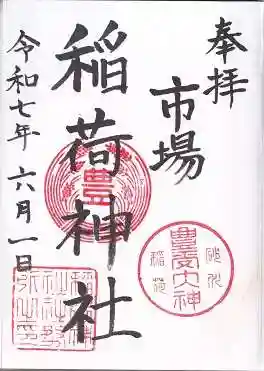 奉拝
市場
稲荷神社
令和七年六月一日
豊受大神
稲荷